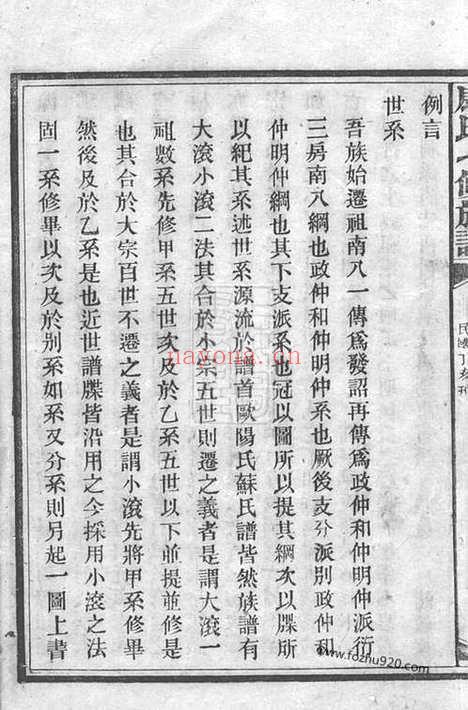 例言
世系
吾族始遷祖南八一傳爲發詔再傳爲政仲和仲明仲派衍
三房南八綱也政仲和仲明仲系也厥後支分派別政仲和
仲明仲綱也其下支派系也冠以圖所以提其綱次以牒所
以紀其系述世系源流於譜首歐陽氏蘇氏譜皆然族譜有
大滾小滾二法其合於小宗五世則遷之義者是謂大滾一
祖數系先修甲系五世次及於乙系五世以下並提並修是
也其合於大宗百世不遷之義者是謂小滾先將甲系修畢
然後及於乙系是也近世譜牒皆沿用之今採用小滾之法
固一系修畢以次及於別系如系又分系則另起一圖上書
氏
修族譜
nayona.cn
www.fozhu920.com